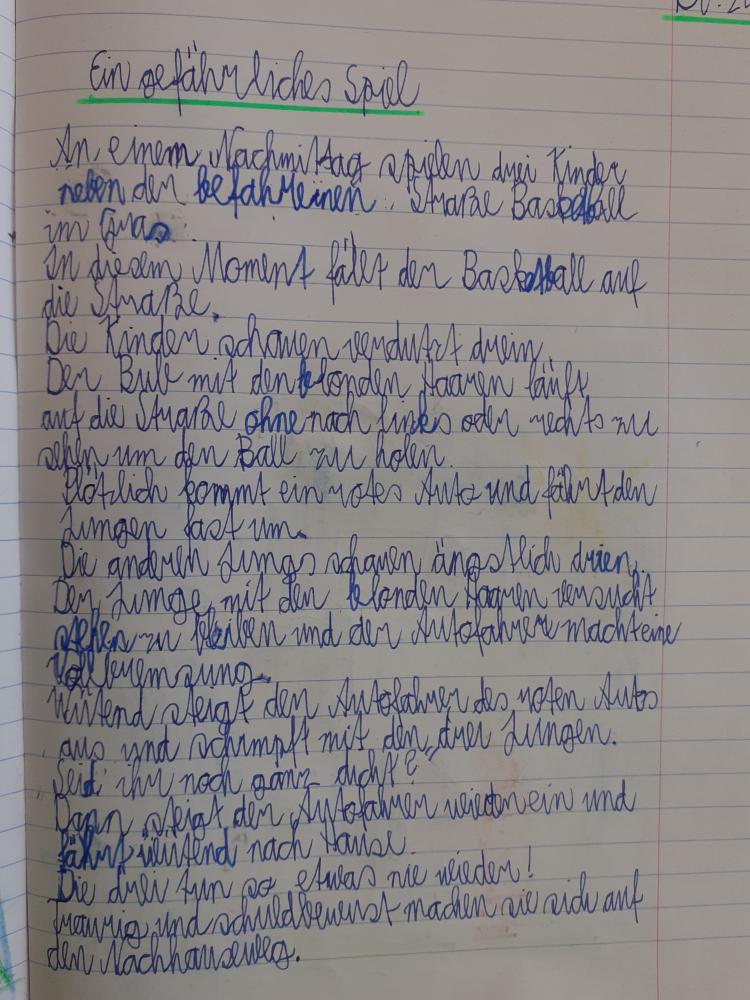 Ein gefährliches Spiel
An einem Nachmittag spielen drei Kinder
neben der befahreinen Straße Basketball
im Gras.
In diesem Moment fällt der Basketball auf
die Straße.
Die Kinder schauen verdutzt drein.
Der Bub mit den blonden Haaren läuft
auf die Straße ohne nach links oder rechts zu
sehen um den Ball zu holen.
Plötzlich kommt ein rotes Auto und fährt den
Jungen fast um.
Die anderen Jungs schauen ängstlich drien.
Der Junge, mit den blonden Haaren versucht
stehen zu bleiben und der Autofahrer macht eine
Vollbremsung.
Wütend steigt der Autofahrer des roten Autos
aus und schimpft mit den drei Jungen.
„Seid ihr noch ganz dicht?"
Dann steigt der Autofahrer wieder ein und
fährt wütend nach Hause.
Die drei tun so etwas nie wieder!
Traurig und schuldbewusst machen sie sich auf
den Nachhauseweg.